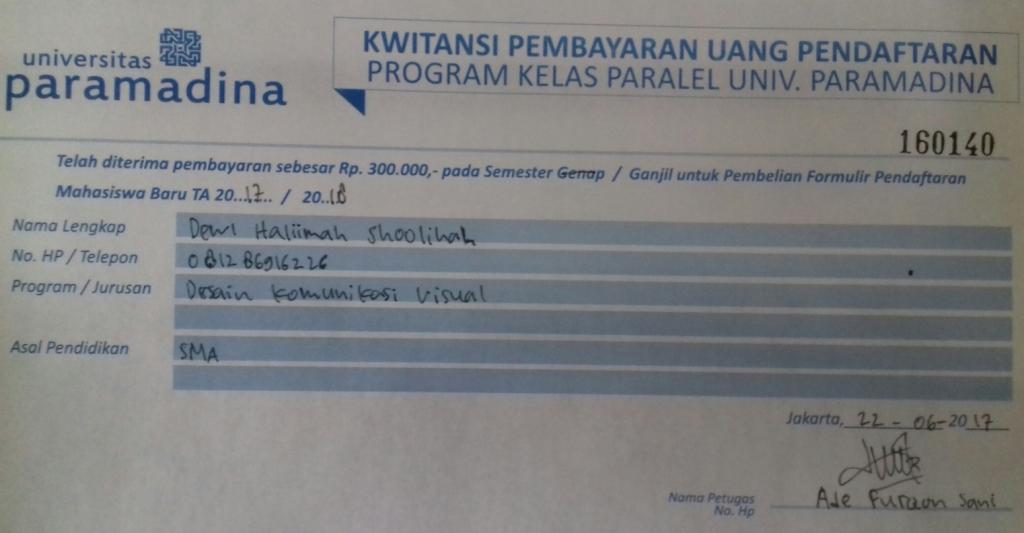 universitas
paramadina
KWITANSI PEMBAYARAN UANG PENDAFTARAN
PROGRAM KELAS PARALEL UNIV. PARAMADINA
160140
Telah diterima pembayaran sebesar Rp. 300.000,- pada Semester Genap / Ganjil untuk Pembelian Formulir Pendaftaran
Mahasiswa Baru TA 20...17.. / 20..18
Nama Lengkap Dewi Haliimah Shoolihah
No. HP / Telepon 081286916226
Program / Jurusan Desain Komunikasi Visual
Asal Pendidikan SMA
Jakarta, 22 - 06-2017
Nama Petugas Ade Furqon Sani
No. Hp